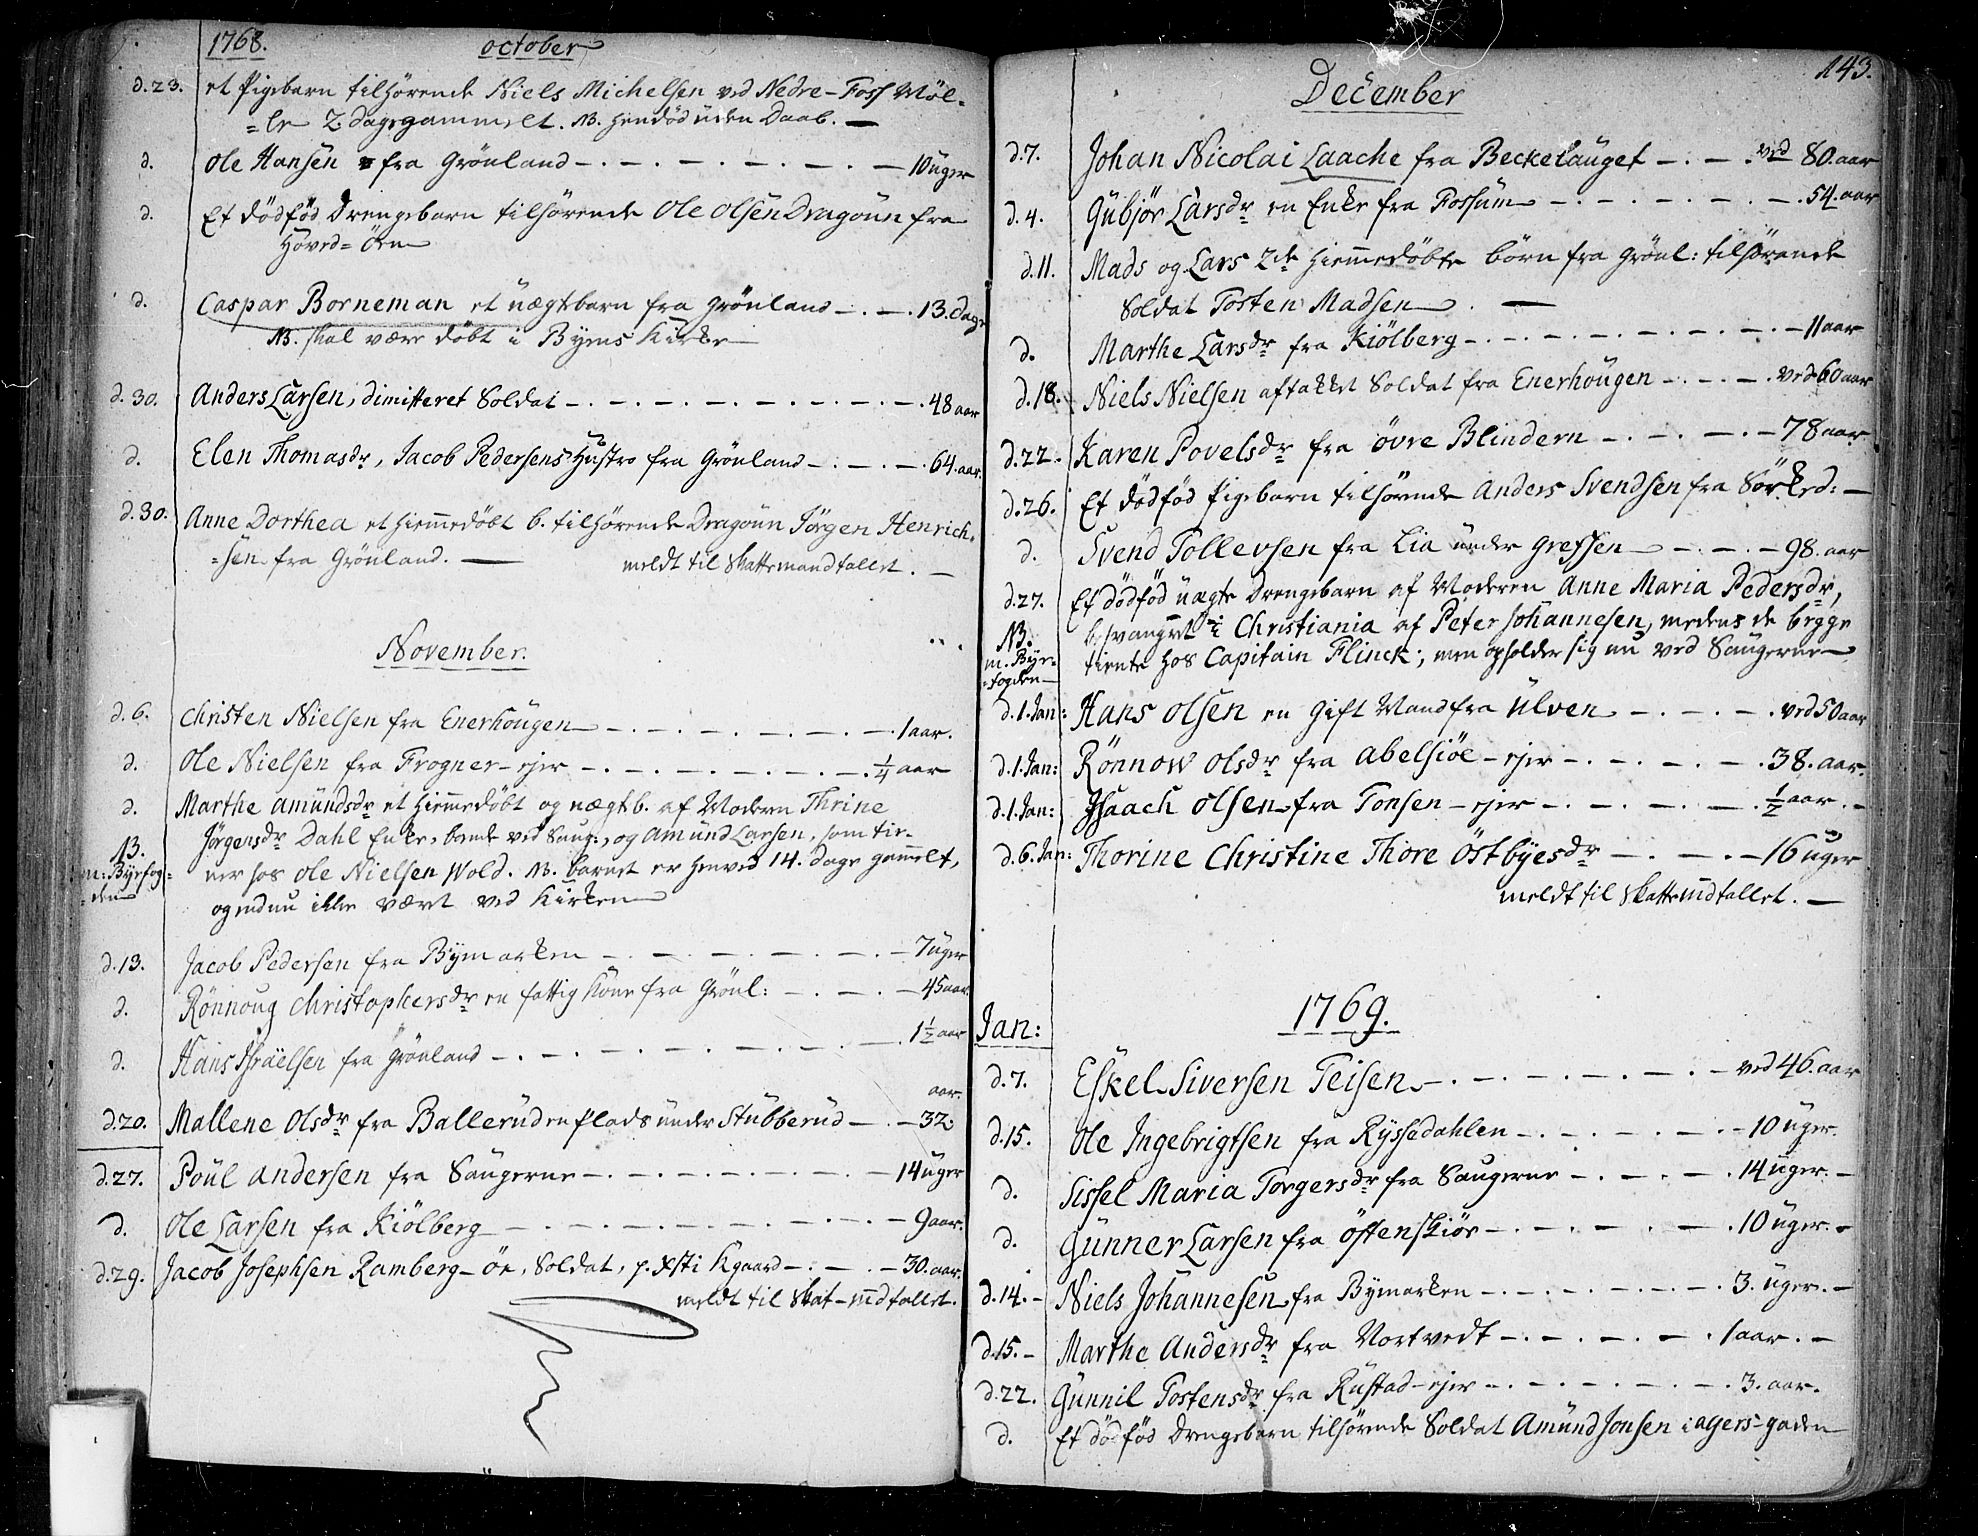 1768. October
d.23. et Pigebarn tilhørende Niels Michelsen ved Nedre-Foss Möl-
=le 2. dage gammelt. NB. hendød uden Daab. —
d. Ole Hansen fra Grönland — 10 uger
d. Et dödföd Drengebarn tilhørende Ole Olsen Dragoun fra
Hoved=Öen
d. Caspar Borneman et uægtbarn fra Grönland — 13. dage
NB. skal være døbt i Byens Kirke
d. 30. Anders Larsen, dimitteret Soldat — 48 aar
d. Elen Thomasdr, Jacob Pedersens Hustro fra Grönland — 64. aar.
d.30. Anne Dorthea et hiemedøbt b. tilhørende Dragoun Jörgen Henrich-
=sen fra Grönland. — meldt til Skattemandtallet. —
November.
d. 6. Christen Nielsen fra Enerhougen — 1 aar.
d. Ole Nielsen fra Frogner-ejer — 1/4 aar
d. Marthe Amundsdr et hiemedøbt og uægt b. af Moderen Thrine
Jørgensdr Dahl Enke, boende ved Saug:, og Amund Larsen, som tie-
NB. ner hos Ole Nielsen Wold. NB. barnet er henved 14. dage gammelt,
m: Byefog-
=den og endnu ikke været ved Kirken
d.13. Jacob Pedersen fra Bymarken — 7 uger
d. Rönnoug Christophersdr en fattig Kone fra Grönl: — 45 aar.
d. Hans Israelsen fra Grönland — 1 1/2 aar
aar.
d.20. Mallene Olsdr fra Ballerud en Plads under Stubberud — 32
d.27. Poul Andersen fra Saugerne — 14 uger
d. Ole Larsen fra Kiölberg — 9 aar.
d.29. Jacob Josephsen Ramberg-öe, Soldat, p. Xsti Kgaard — 30. aar.
meldt til Skat-mdtallet.
143.
December
d.7. Johan Nicolai Laache fra Beckelauget — ved 80. aar
d.4. Gubjör Larsdr en Enke fra Fossum — 54. aar
d.11. Mads og Lars 2de hiemmedøbte børn fra Grönl: tilhørende
Soldat Tosten Madsen —
d. Marthe Larsdr fra Kiölberg — 11 aar
d.18. Niels Nielsen aftakket Soldat fra Enerhougen — ved 60 aar
d.22. Karen Povelsdr fra Övre Blindern — 78 aar
d.26. Et dödföd Pigebarn tilhørende Anders Svendsen fra Sörked: —
d. Svend Tollevsen fra Lia under Grefsen — 98. aar
d.27. Et dödföd uægte Drengebarn af Moderen Anne Maria Pedersdr,
NB. besvangret i Christiania af Peter Johannesen, medens de begge
m. Bye-
=fogden tiente hos Capitain Flinck; men opholder sig nu ved Saugerne
d.1. Jan: Hans Olsen en Gift Mand fra Ulven — ved 50 aar
d.1. Jan: Rönnow Olsdr fra Abelsiöe-ejer — 38. aar.
d.1. Jan: Isaach Olsen fra Tonsen-ejer — 1/2 aar. -
d.6. Jan: Thorine Christine Thore Östbyesdr — 16 uger
meldt til Skattemdtallet. —
Jan: 1769.
d.7. Eskel Siversen Teisen — ved 46. aar
d.15. Ole Ingebrigtsen fra Ryssedahlen — 10 uger.
d. Sissel Maria Torgersdr fra Saugerne — 14 uger. -
d. Gunner Larsen fra Östenskiör — 10 uger. -
d.14. - Niels Johannesen fra Bymarken — 3. uger. -
d.15. - Marthe Andersdr fra Vortvedt — 1 aar. -
d.22. Gunnil Tostensdr fra Rustad-ejer — 3. aar.
d. Et dödföd Drengebarn tilhørende Soldat Amund Jonsen i Agers-gaden